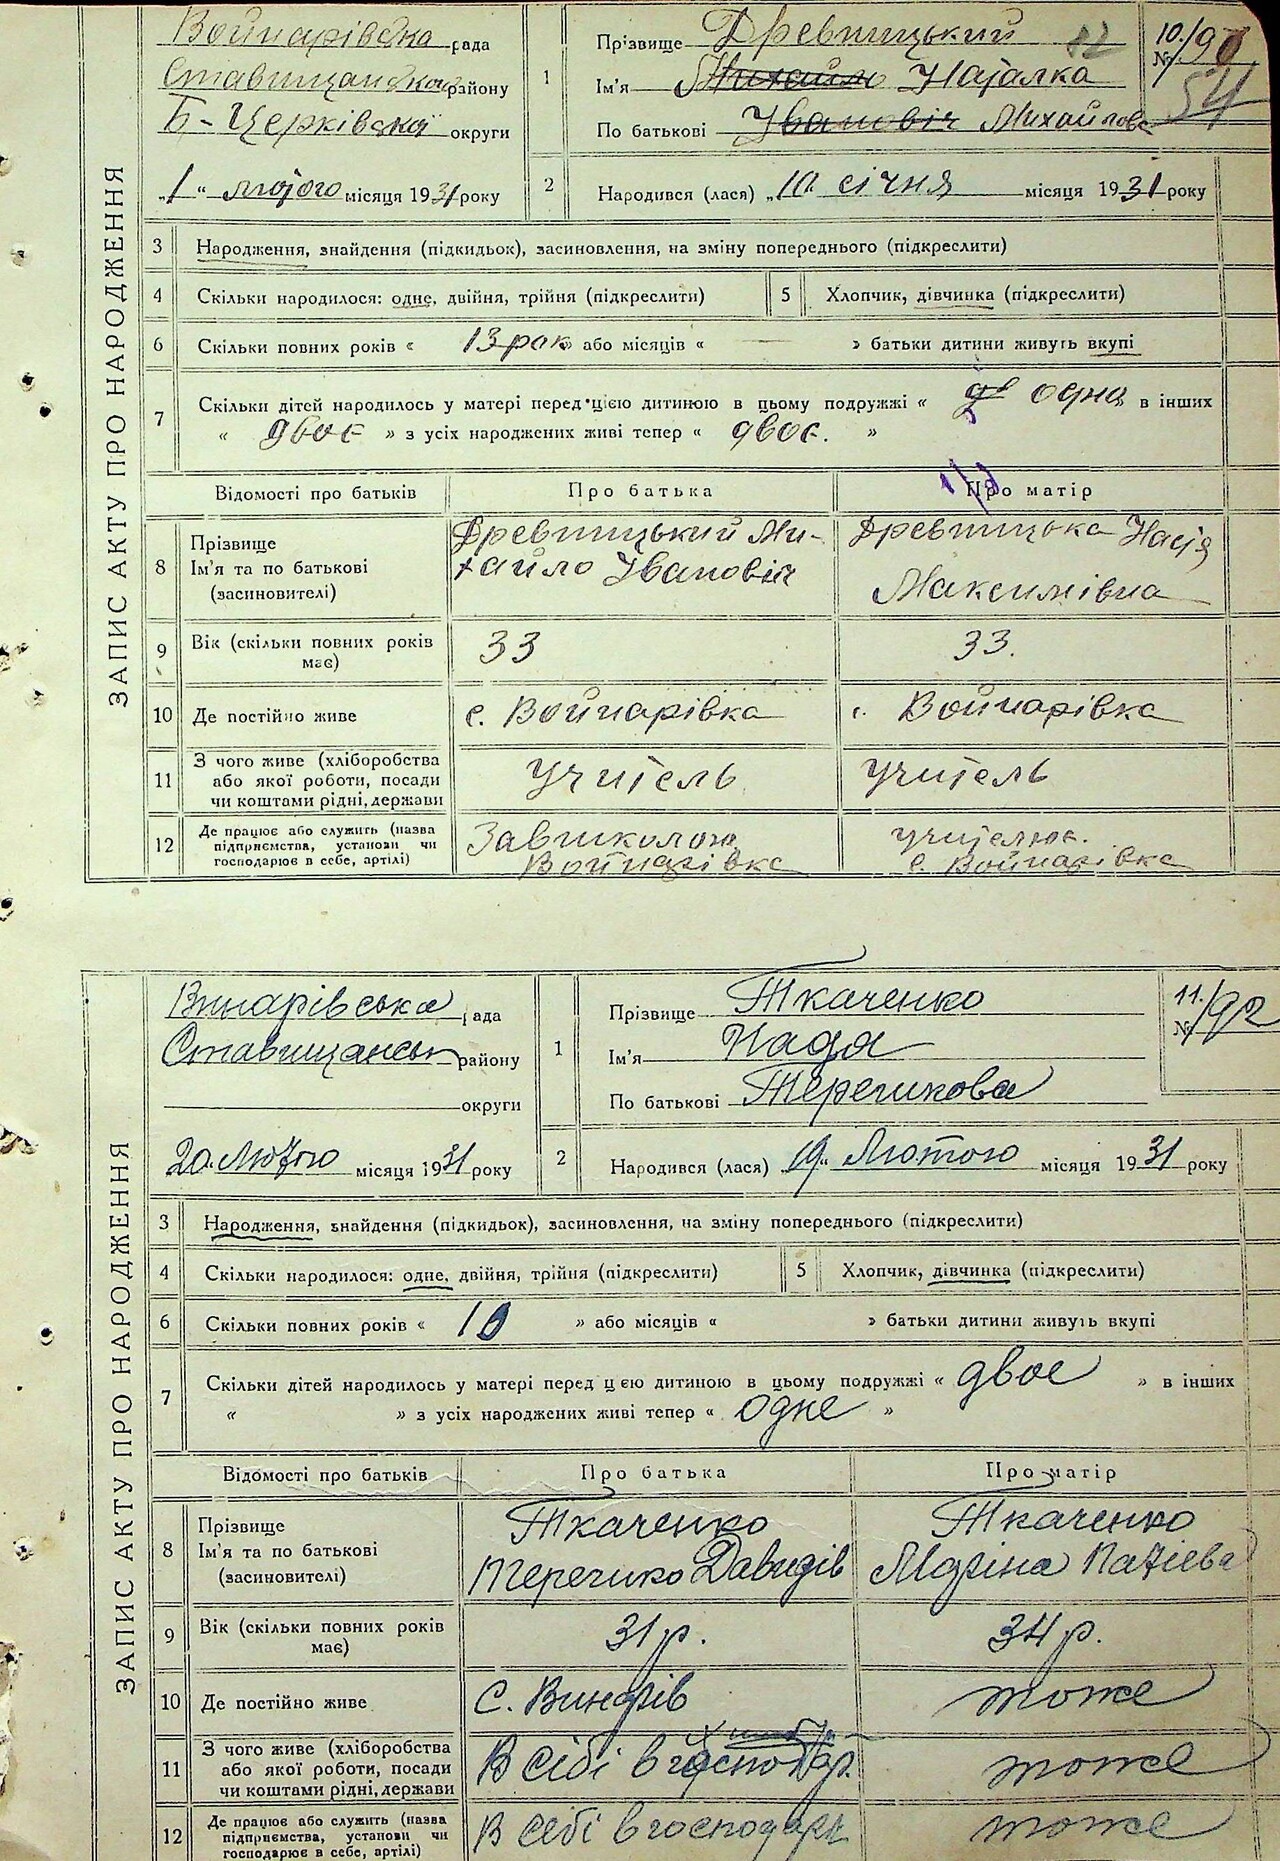 ЗАПИС АКТУ ПРО НАРОДЖЕННЯ
Войнарівська рада
Ставищанського району
Б-Церківської округи
„1“ лютого місяця 1931 року
1
Прізвище Древницький
Ім'я Михайло Наталка
По батькові Іванович Михайлова
12
10.
№ 90
54
2
Народився (лася) „10 січня місяця 1931 року
3 Народження, знайдення (підкидьок), засиновлення, на зміну попереднього (підкреслити)
4 Скільки народилося: одне, двійня, трійня (підкреслити)
5 Хлопчик, дівчинка (підкреслити)
6 Скільки повних років « 13 рок » або місяців « — » батьки дитини живуть вкупі
7 Скільки дітей народилось у матері перед цією дитиною в цьому подружжі « одна » в інших
« двоє » з усіх народжених живі тепер « двоє. »
Відомості про батьків
Про батька
Про матір
8 Прізвище
Ім'я та по батькові
(засиновителі)
Древницький Ми-
хайло Іванович
Древницька Настя
Максимівна
9 Вік (скільки повних років
має)
33
33.
10 Де постійно живе
с. Войнарівка
с. Войнарівка
11 З чого живе (хліборобства
або якої роботи, посади
чи коштами рідні, держави
Учитель
Учитель
12 Де працює або служить (назва
підприємства, установи чи
господарює в себе, артілі)
Завшколою
Войнарівка
учителює.
с. Войнарівка
ЗАПИС АКТУ ПРО НАРОДЖЕННЯ
Винарівська рада
Ставищанськ району
округи
20 Лютого місяця 1931 року
1
Прізвище Ткаченко
Ім'я Надя
По батькові Терешкова
11.
№ 92
2
Народився (лася) 19 „ Лютого місяця 1931 року
3 Народження, знайдення (підкидьок), засиновлення, на зміну попереднього (підкреслити)
4 Скільки народилося: одне, двійня, трійня (підкреслити)
5 Хлопчик, дівчинка (підкреслити)
6 Скільки повних років « 10 » або місяців « » батьки дитини живуть вкупі
7 Скільки дітей народилось у матері перед цією дитиною в цьому подружжі « двое » в інших
« » з усіх народжених живі тепер « одне »
Відомості про батьків
Про батька
Про матір
8 Прізвище
Ім'я та по батькові
(засиновителі)
Ткаченко
Терешко Давидів
Ткаченко
Мариіна
9 Вік (скільки повних років
має)
31 р.
34 р.
10 Де постійно живе
С. Винарів
тоже
11 З чого живе (хліборобства
або якої роботи, посади
чи коштами рідні, держави
В себі в господар.
тоже
12 Де працює або служить (назва
підприємства, установи чи
господарює в себе, артілі)
В себі в господарь
тоже